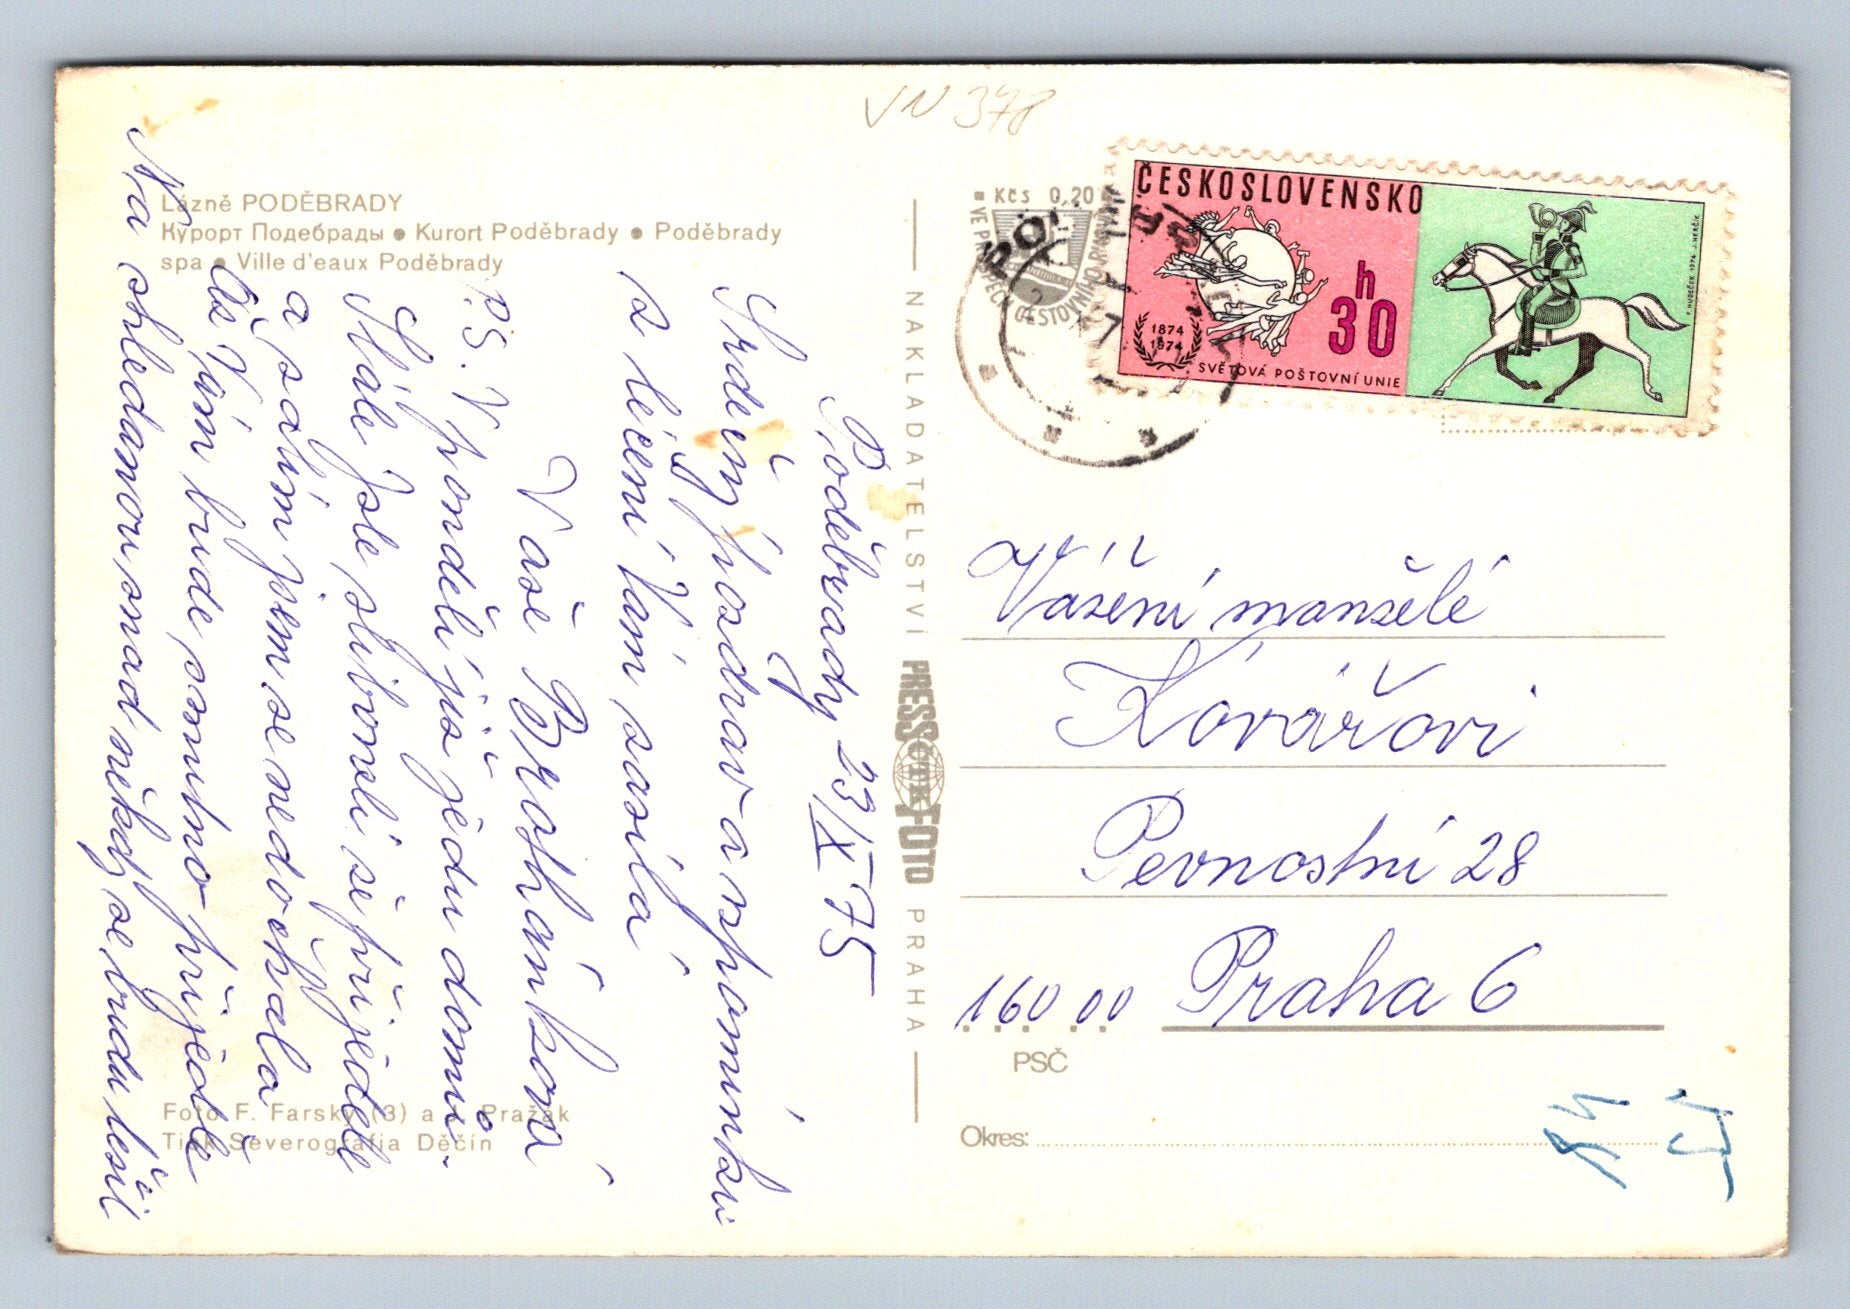 VN 378
Lázně PODĚBRADY
Курорт Подебрады ● Kurort Poděbrady ● Poděbrady
spa ● Ville d'eaux Poděbrady
Poděbrady 23/X 75
Srdečný pozdrav a vzpomínku
z léčení Vám zasílá
Vaše Brožánková
P.S. V pondělí již jedu domů.
Stále jste slibovali že přijedete
a zatím jsem se nedočkala
až Vám bude smutno přijeďte
Na shledanou snad někdy se budu těšit
Foto F. Farský (3) a Pražák
Tisk Severografia Děčín
NAKLADATELSTVÍ PRESSFOTO PRAHA
ČTK
Kčs 0,20
VE PROSPĚCH CESTOVNÍHO RUCHU
ČESKOSLOVENSKO
h
30
1874
1974
SVĚTOVÁ POŠTOVNÍ UNIE
F. HUDEČEK 1974 J. HERČÍK
Vážení manželé
Kovářovi
Pevnostní 28
160 00 Praha 6
PSČ
Okres: